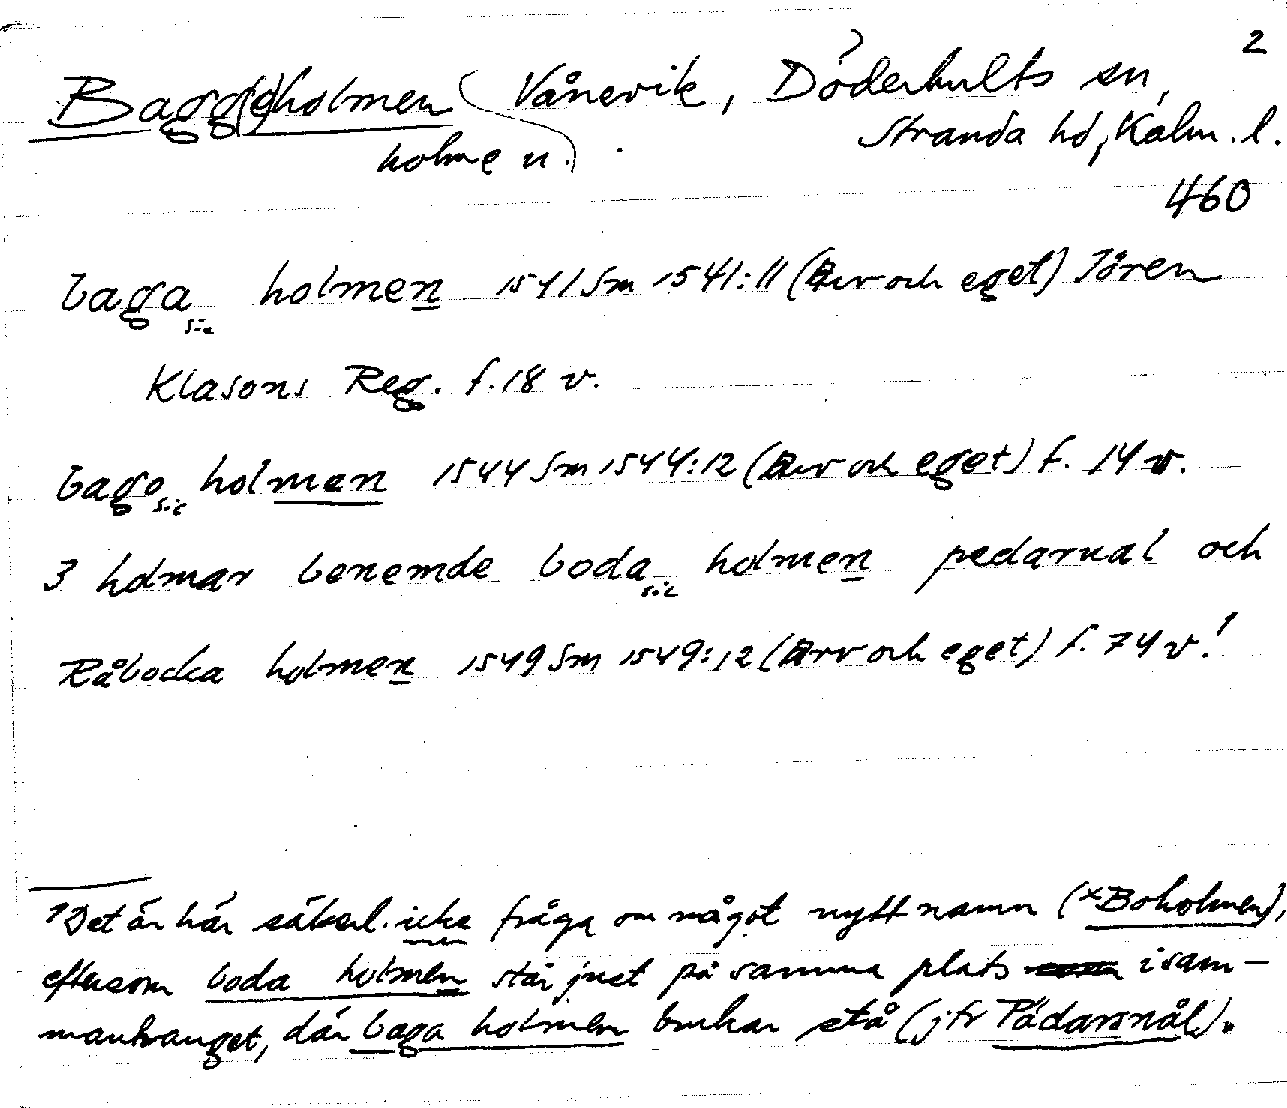 2
Bagg(e)holmen (holme n.) Vånevik, Döderhults sn,
Stranda hd, Kalm. l.
460
baga sic holmen 1541 Sm 1541:11 (Arv och eget) Jören
Klasons Reg. f. 18 v.
bago sic holmen 1544 Sm 1544:12 (Arv och eget) f. 14 v.
3 holmar benemde boda sic holmen pedarnal och
Råbocka holmen 1549 Sm 1549:12 (Arv och eget) f. 74 v.¹
¹ Det är här säkerl. icke fråga om något nytt namn (*Boholmen),
eftersom boda holmen står just på samma plats i sam-
manhanget, där baga holmen brukar stå (jfr Pädarsnål).